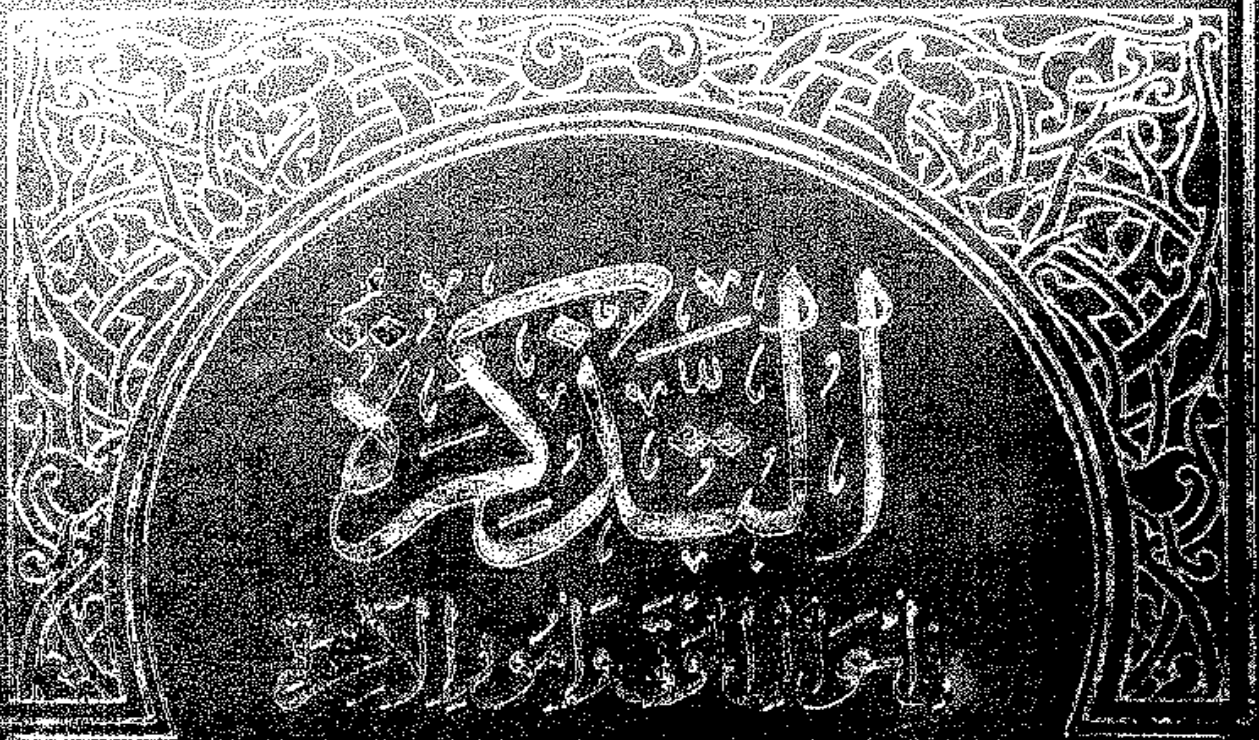 التذكرة
بأحوال الموتى وأمور الآخرة